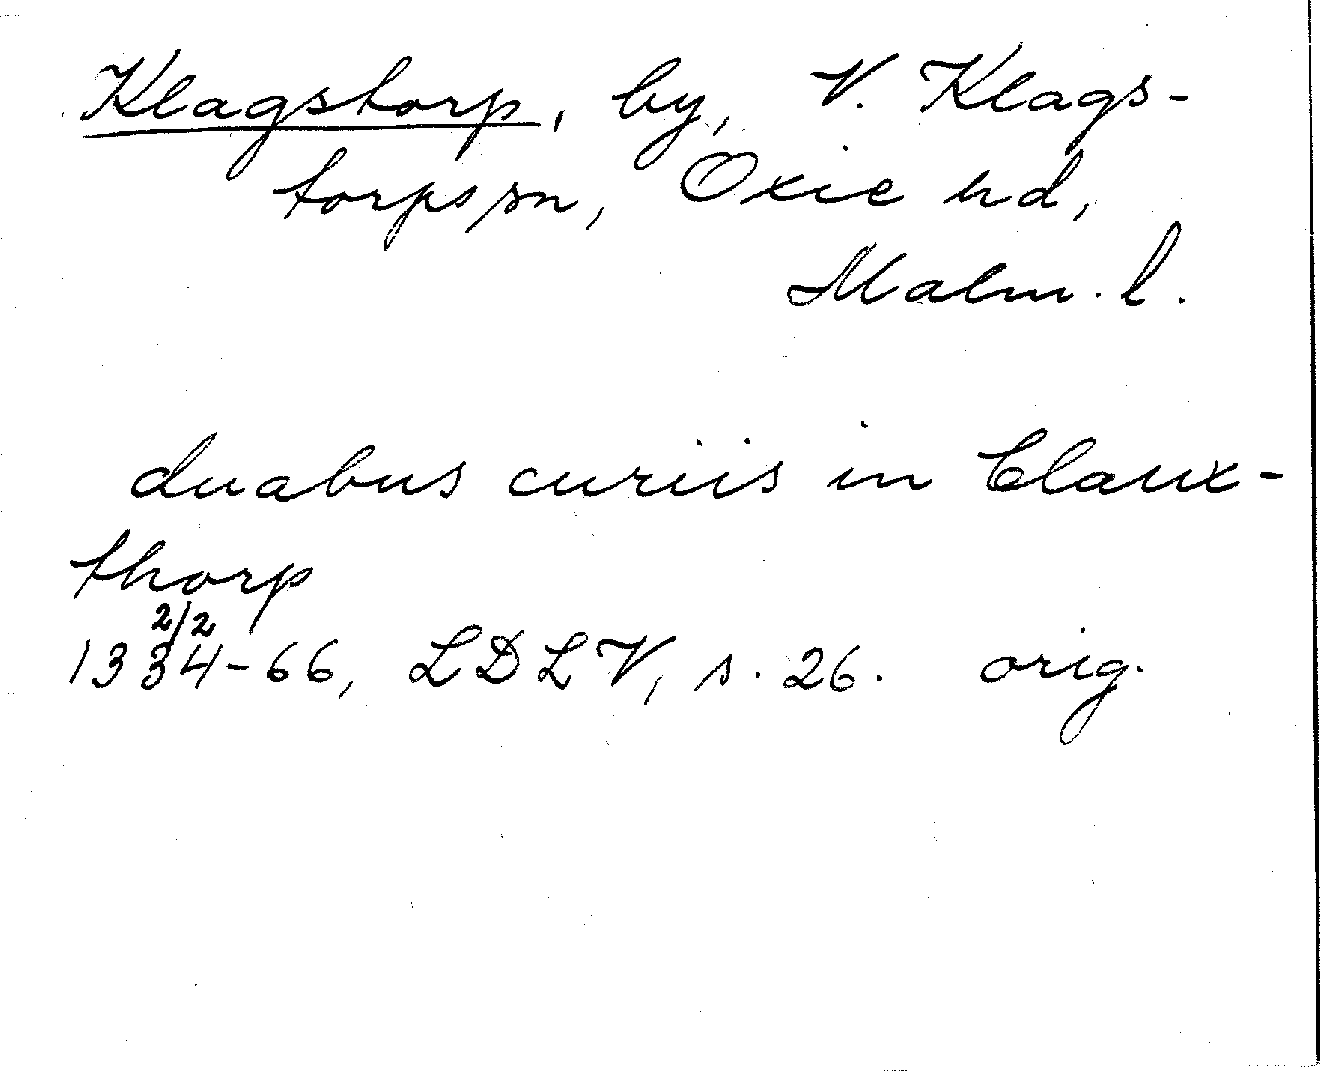 Klagstorp, by, V. Klags-
torps sn, Oxie hd,
Malm. l.
duabus curiis in Claux-
thorp
2/2
1334-66, LDLV, s. 26. orig.